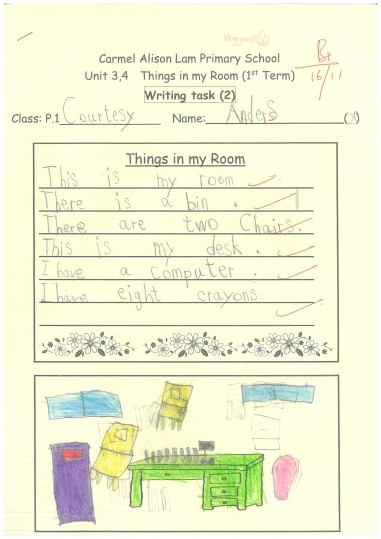 Very good!
Carmel Alison Lam Primary School
B+
Unit 3,4 Things in my Room (1st Term)
16/11
Writing task (2)
Class: P.1 Courtesy Name: Anders
Things in my Room
This is my room
There is a bin .
There are two Chairs.
This is my desk .
I have a computer .
I have eight crayons